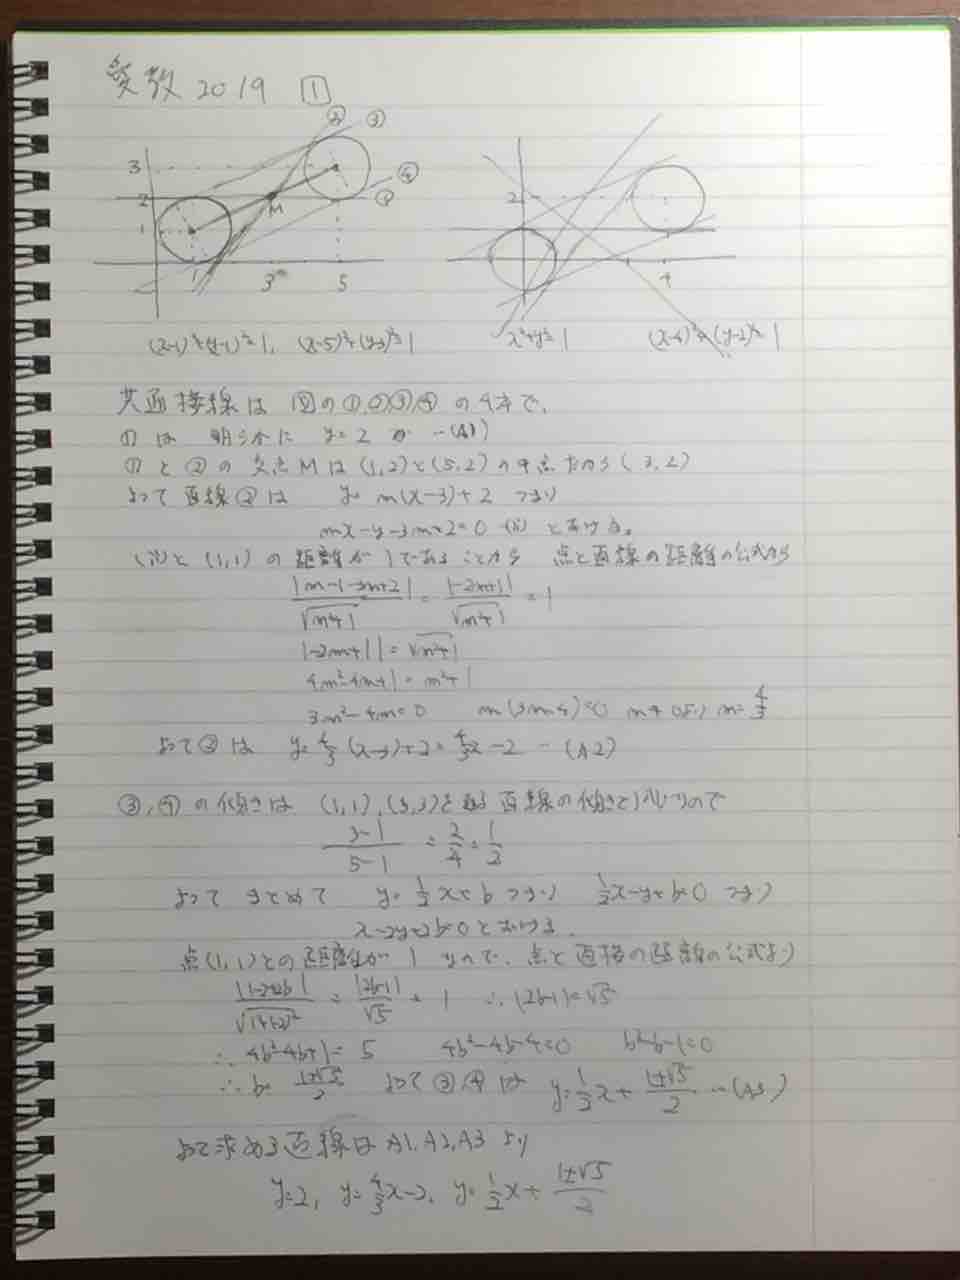 変数 2019 1
② ③
3 ④
2 M ①
1
1 3 5
2
4
(x-1)²+(y-1)²=1, (x-5)²+(y-3)²=1
x²+y²=1 (x-4)²+(y-2)²=1
共通接線は 図の①,②,③,④ の4本で、
①は 明らかに y=2 …(A1)
①と②の交点Mは(1,2)と(5,2)の中点だから(3,2)
よって直線②は y=m(x-3)+2 つまり
mx-y-3m+2=0 (ii) とおける。
(ii)と(1,1)の距離が1であることから 点と直線の距離の公式から
|m-1-3m+2|/√m²+1 = |-2m+1|/√m²+1 = 1
|-2m+1|=√m²+1
4m²-4m+1=m²+1
3m²-4m=0 m(3m-4)=0 m≠0より m=4/3
よって②は y=4/3(x-3)+2=4/3x-2 …(A2)
③,④の傾きは (1,1),(5,3)を通る直線の傾きと等しいので
3-1/5-1 = 2/4 = 1/2
よって まとめて y=1/2x+b つまり 1/2x-y+b=0 つまり
x-2y+2b=0 とおける.
点(1,1)との距離が1なので、点と直線の距離の公式より
|1-2+2b|/√1+(-2)² = |2b-1|/√5 = 1 ∴|2b-1|=√5
∴ 4b²-4b+1=5 4b²-4b-4=0 b²-b-1=0
∴ b=1±√5/2 よって③,④は y=1/2x+1±√5/2 …(A3)
よって求める直線は A1,A2,A3 より
y=2, y=4/3x-2, y=1/2x+1±√5/2